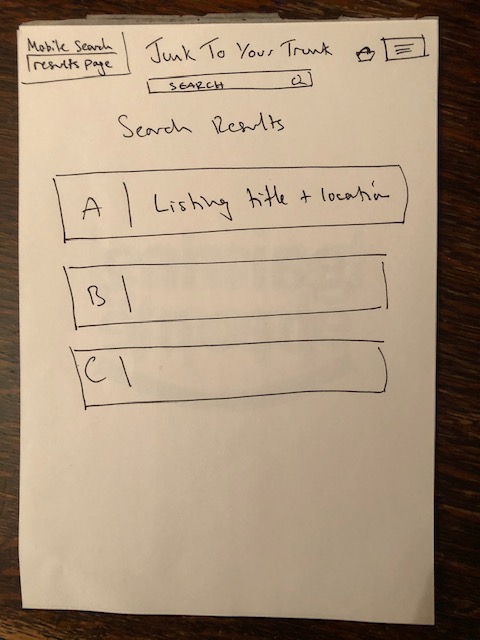 Mobile Search
results page
Junk To Your Trunk
SEARCH
Search Results
A | Listing title + location
B |
C |